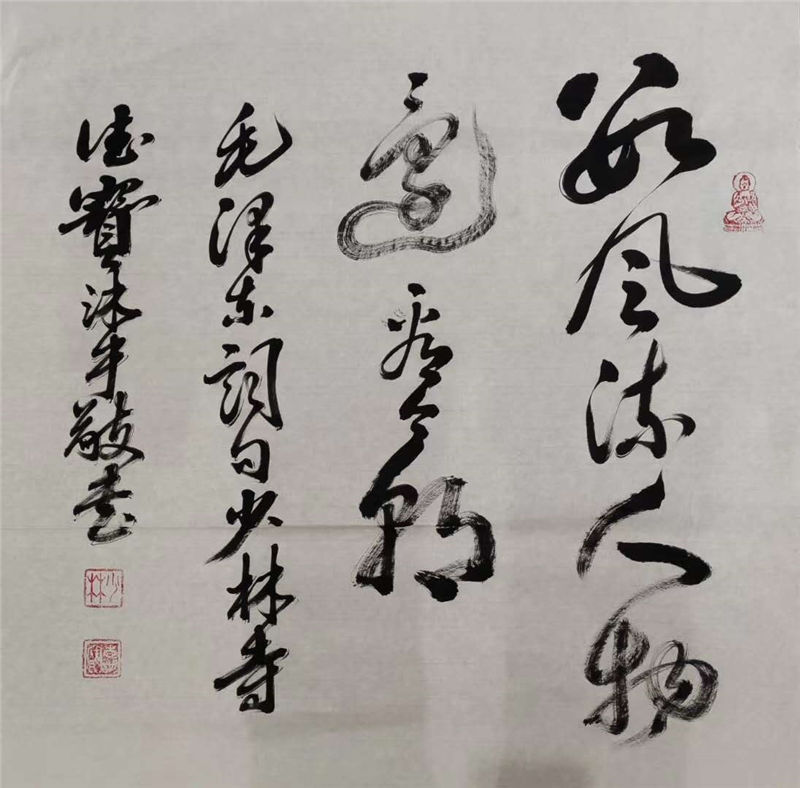 数风流人物
还看今朝
毛泽东詞句少林寺
德寶沐手敬书
少林